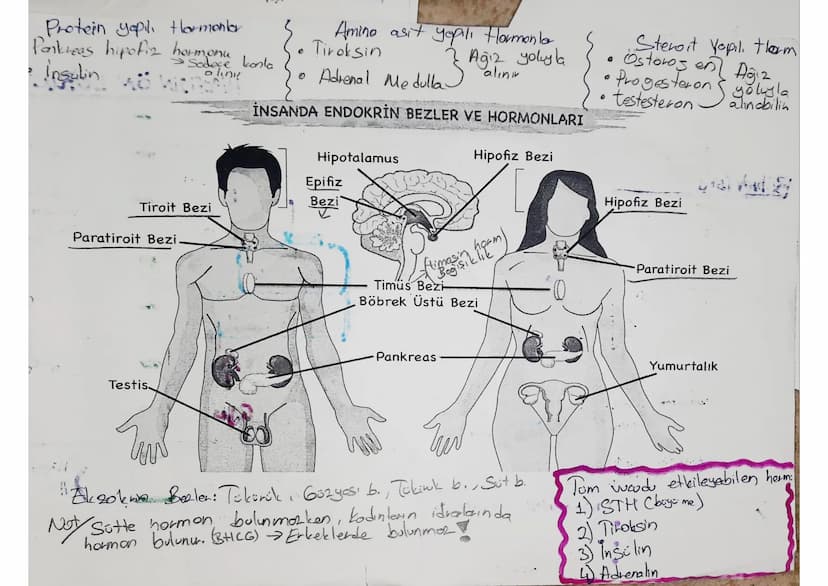 Protein yapılı Hormonlar
Pankreas hipofiz hormonu
→ Sadece kanla alınır
• İnsulin
Amino asit yapılı Hormonlar
• Tiroksin
• Adrenal Medulla
Ağız yoluyla alınır
Steroit Yapılı Horm
• Östrojen
• Progesteron
• Testesteron
Ağız yoluyla alınabilir
İNSANDA ENDOKRİN BEZLER VE HORMONLARI
Hipotalamus
Hipofiz Bezi
Epifiz Bezi
Tiroit Bezi
Hipofiz Bezi
Paratiroit Bezi
Paratiroit Bezi
(timosin horm)
Bağışıklık
Timüs Bezi
Böbrek Üstü Bezi
Pankreas
Testis
Yumurtalık
Bezler: Tükürük, Gözyaşı b., b., Süt b.
Not/ Sütte hormon bulunmazken, kadınların idrarlarında
hormon bulunur. (BHCG) → Erkeklerde bulunmaz!
Tüm vücudu etkileyebilen horm:
1) STH (büyüme)
2) Tiroksin
3) İnsülin
4) Adrenalin